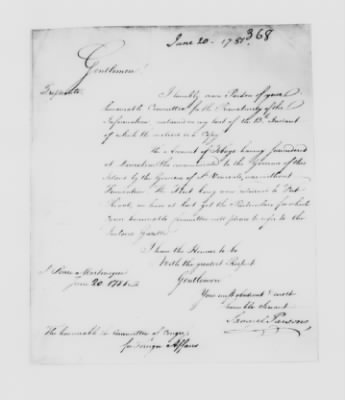 368
June 20 - 1781
Gentlemen!
Triplicate
I humbly crave Pardon of your
honourable Committee for the Prematurity of the
Information contained in my last of the 13. Instant
of which the enclosed is a Copy
the Account of Tobago having surrendered
at
Island by the Governor of St Vincents, was without
Foundation the Fleet being now returned to Fort
Royal, we have at last got the Particulars for which
your honourable Committee will please to refer to the
Gazette
I have the Honour to be
With the greatest Respect
Gentlemen
Your most obedient & most
humble Servant
Samuel Parsons
St Pierre Martinique
June 20. 1781
The honourable the Committee of Congress
for Foreign Affairs